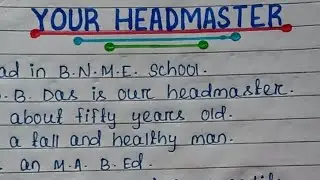 YOUR HEADMASTER
ad in B.N.M.E. School.
B. Das is our headmaster.
about fifty years old.
a tall and healthy man.
an M.A. B.Ed.